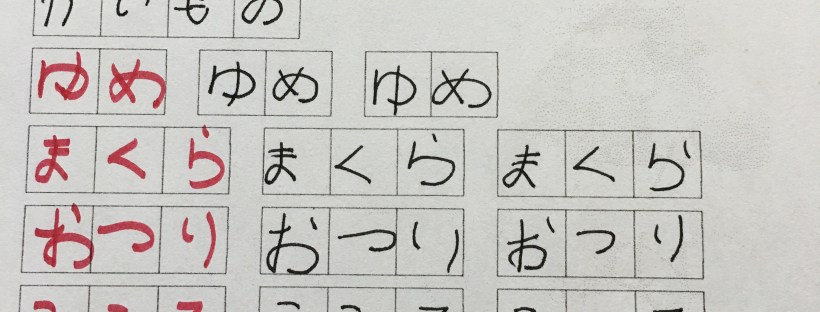 かいもの
ゆめ ゆめ ゆめ
まくら まくら まくら
おつり おつり おつり